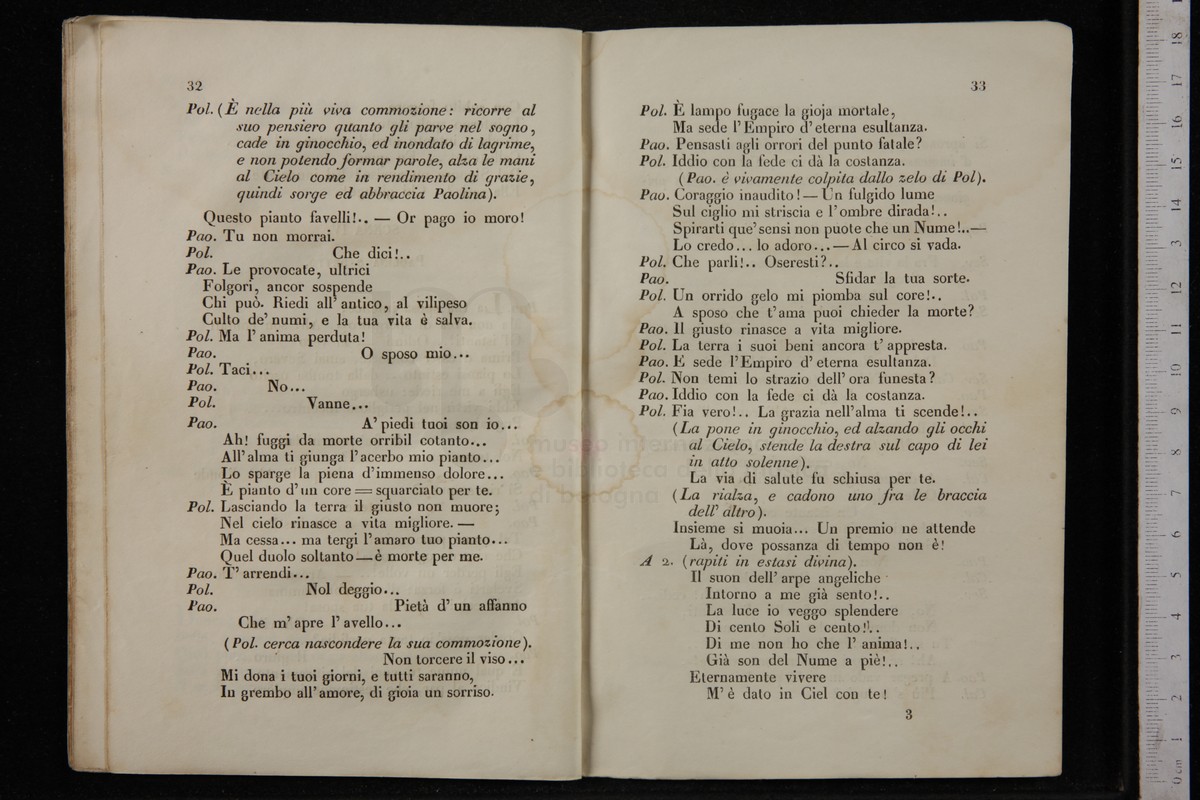 32
Pol. (È nella più viva commozione: ricorre al
suo pensiero quanto gli parve nel sogno,
cade in ginocchio, ed inondato di lagrime,
e non potendo formar parole, alza le mani
al Cielo come in rendimento di grazie,
quindi sorge ed abbraccia Paolina).
Questo pianto favelli!.. — Or pago io moro!
Pao. Tu non morrai.
Pol. Che dici!..
Pao. Le provocate, ultrici
Folgori, ancor sospende
Chi può. Riedi all' antico, al vilipeso
Culto de' numi, e la tua vita è salva.
Pol. Ma l' anima perduta!
Pao. O sposo mio...
Pol. Taci...
Pao. No...
Pol. Vanne...
Pao. A' piedi tuoi son io...
Ah! fuggi da morte orribil cotanto...
All' alma ti giunga l' acerbo mio pianto...
Lo sparge la piena d' immenso dolore...
È pianto d' un core = squarciato per te.
Pol. Lasciando la terra il giusto non muore;
Nel cielo rinasce a vita migliore. —
Ma cessa... ma tergi l' amaro tuo pianto...
Quel duolo soltanto — è morte per me.
Pao. T' arrendi...
Pol. Nol deggio...
Pao. Pietà d' un affanno
Che m' apre l' avello...
(Pol. cerca nascondere la sua commozione).
Non torcere il viso...
Mi dona i tuoi giorni, e tutti saranno,
In grembo all' amore, di gioia un sorriso.
33
Pol. È lampo fugace la gioja mortale,
Ma sede l' Empiro d' eterna esultanza.
Pao. Pensasti agli orrori del punto fatale?
Pol. Iddio con la fede ci dà la costanza.
(Pao. è vivamente colpita dallo zelo di Pol).
Pao. Coraggio inaudito! — Un fulgido lume
Sul ciglio mi striscia e l' ombre dirada!..
Spirarti que' sensi non puote che un Nume!..—
Lo credo... lo adoro... — Al circo si vada.
Pol. Che parli!.. Oseresti?..
Pao. Sfidar la tua sorte.
Pol. Un orrido gelo mi piomba sul core!..
A sposo che t' ama puoi chieder la morte?
Pao. Il giusto rinasce a vita migliore.
Pol. La terra i suoi beni ancora t' appresta.
Pao. E sede l' Empiro d' eterna esultanza.
Pol. Non temi lo strazio dell' ora funesta?
Pao. Iddio con la fede ci dà la costanza.
Pol. Fia vero!.. La grazia nell' alma ti scende!..
(La pone in ginocchio, ed alzando gli occhi
al Cielo, stende la destra sul capo di lei
in atto solenne).
La via di salute fu schiusa per te.
(La rialza, e cadono uno fra le braccia
dell' altro).
Insieme si muoia... Un premio ne attende
Là, dove possanza di tempo non è!
A 2. (rapiti in estasi divina).
Il suon dell' arpe angeliche
Intorno a me già sento!..
La luce io veggo splendere
Di cento Soli e cento!..
Di me non ho che l' anima!..
Già son del Nume a piè!..
Eternamente vivere
M' è dato in Ciel con te!
3